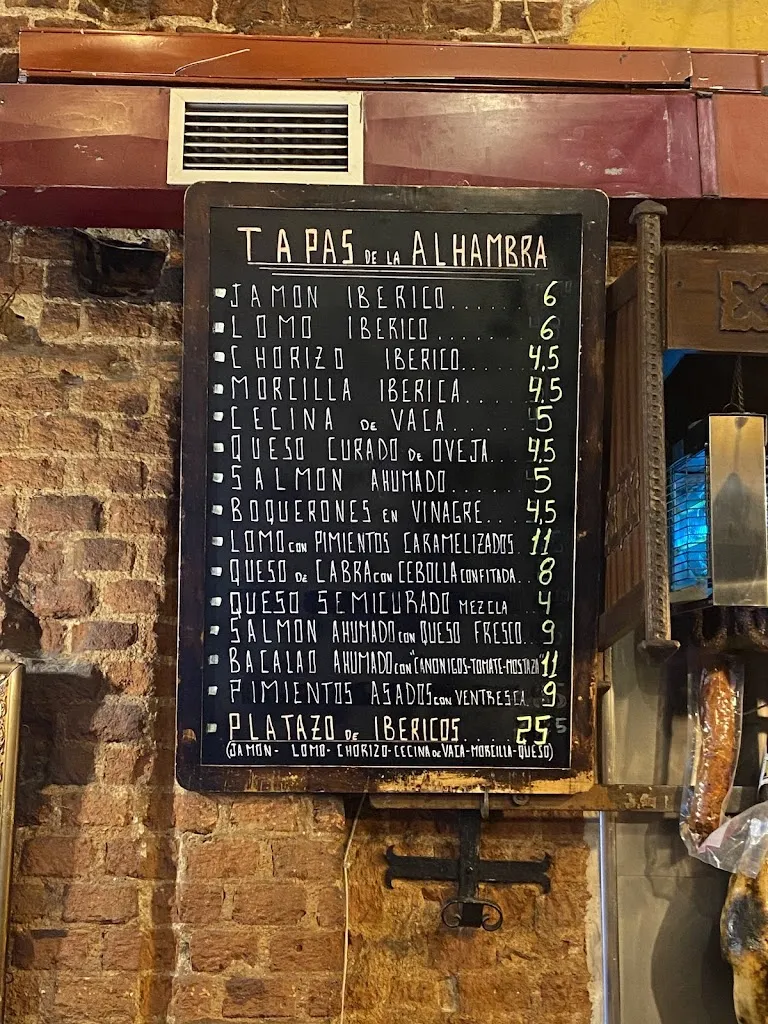 TAPAS DE LA ALHAMBRA
JAMON IBERICO....... 6
LOMO IBERICO....... 6
CHORIZO IBERICO... 4,5
MORCILLA IBERICA... 4,5
CECINA DE VACA...... 5
QUESO CURADO DE OVEJA... 4,5
SALMON AHUMADO...... 5
BOQUERONES EN VINAGRE... 4,5
LOMO CON PIMIENTOS CARAMELIZADOS. 11
QUESO DE CABRA CON CEBOLLA CONFITADA.. 8
QUESO SEMICURADO MEZCLA ... 4
SALMON AHUMADO CON QUESO FRESCO... 9
BACALAO AHUMADO CON "CANONIGOS-TOMATE-MOSTAZA" 11
PIMIENTOS ASADOS CON VENTRESCA.. 9
PLATAZO DE IBERICOS...... 25
(JAMON- LOMO- CHORIZO-CECINA DE VACA-MORCILLA-QUESO)